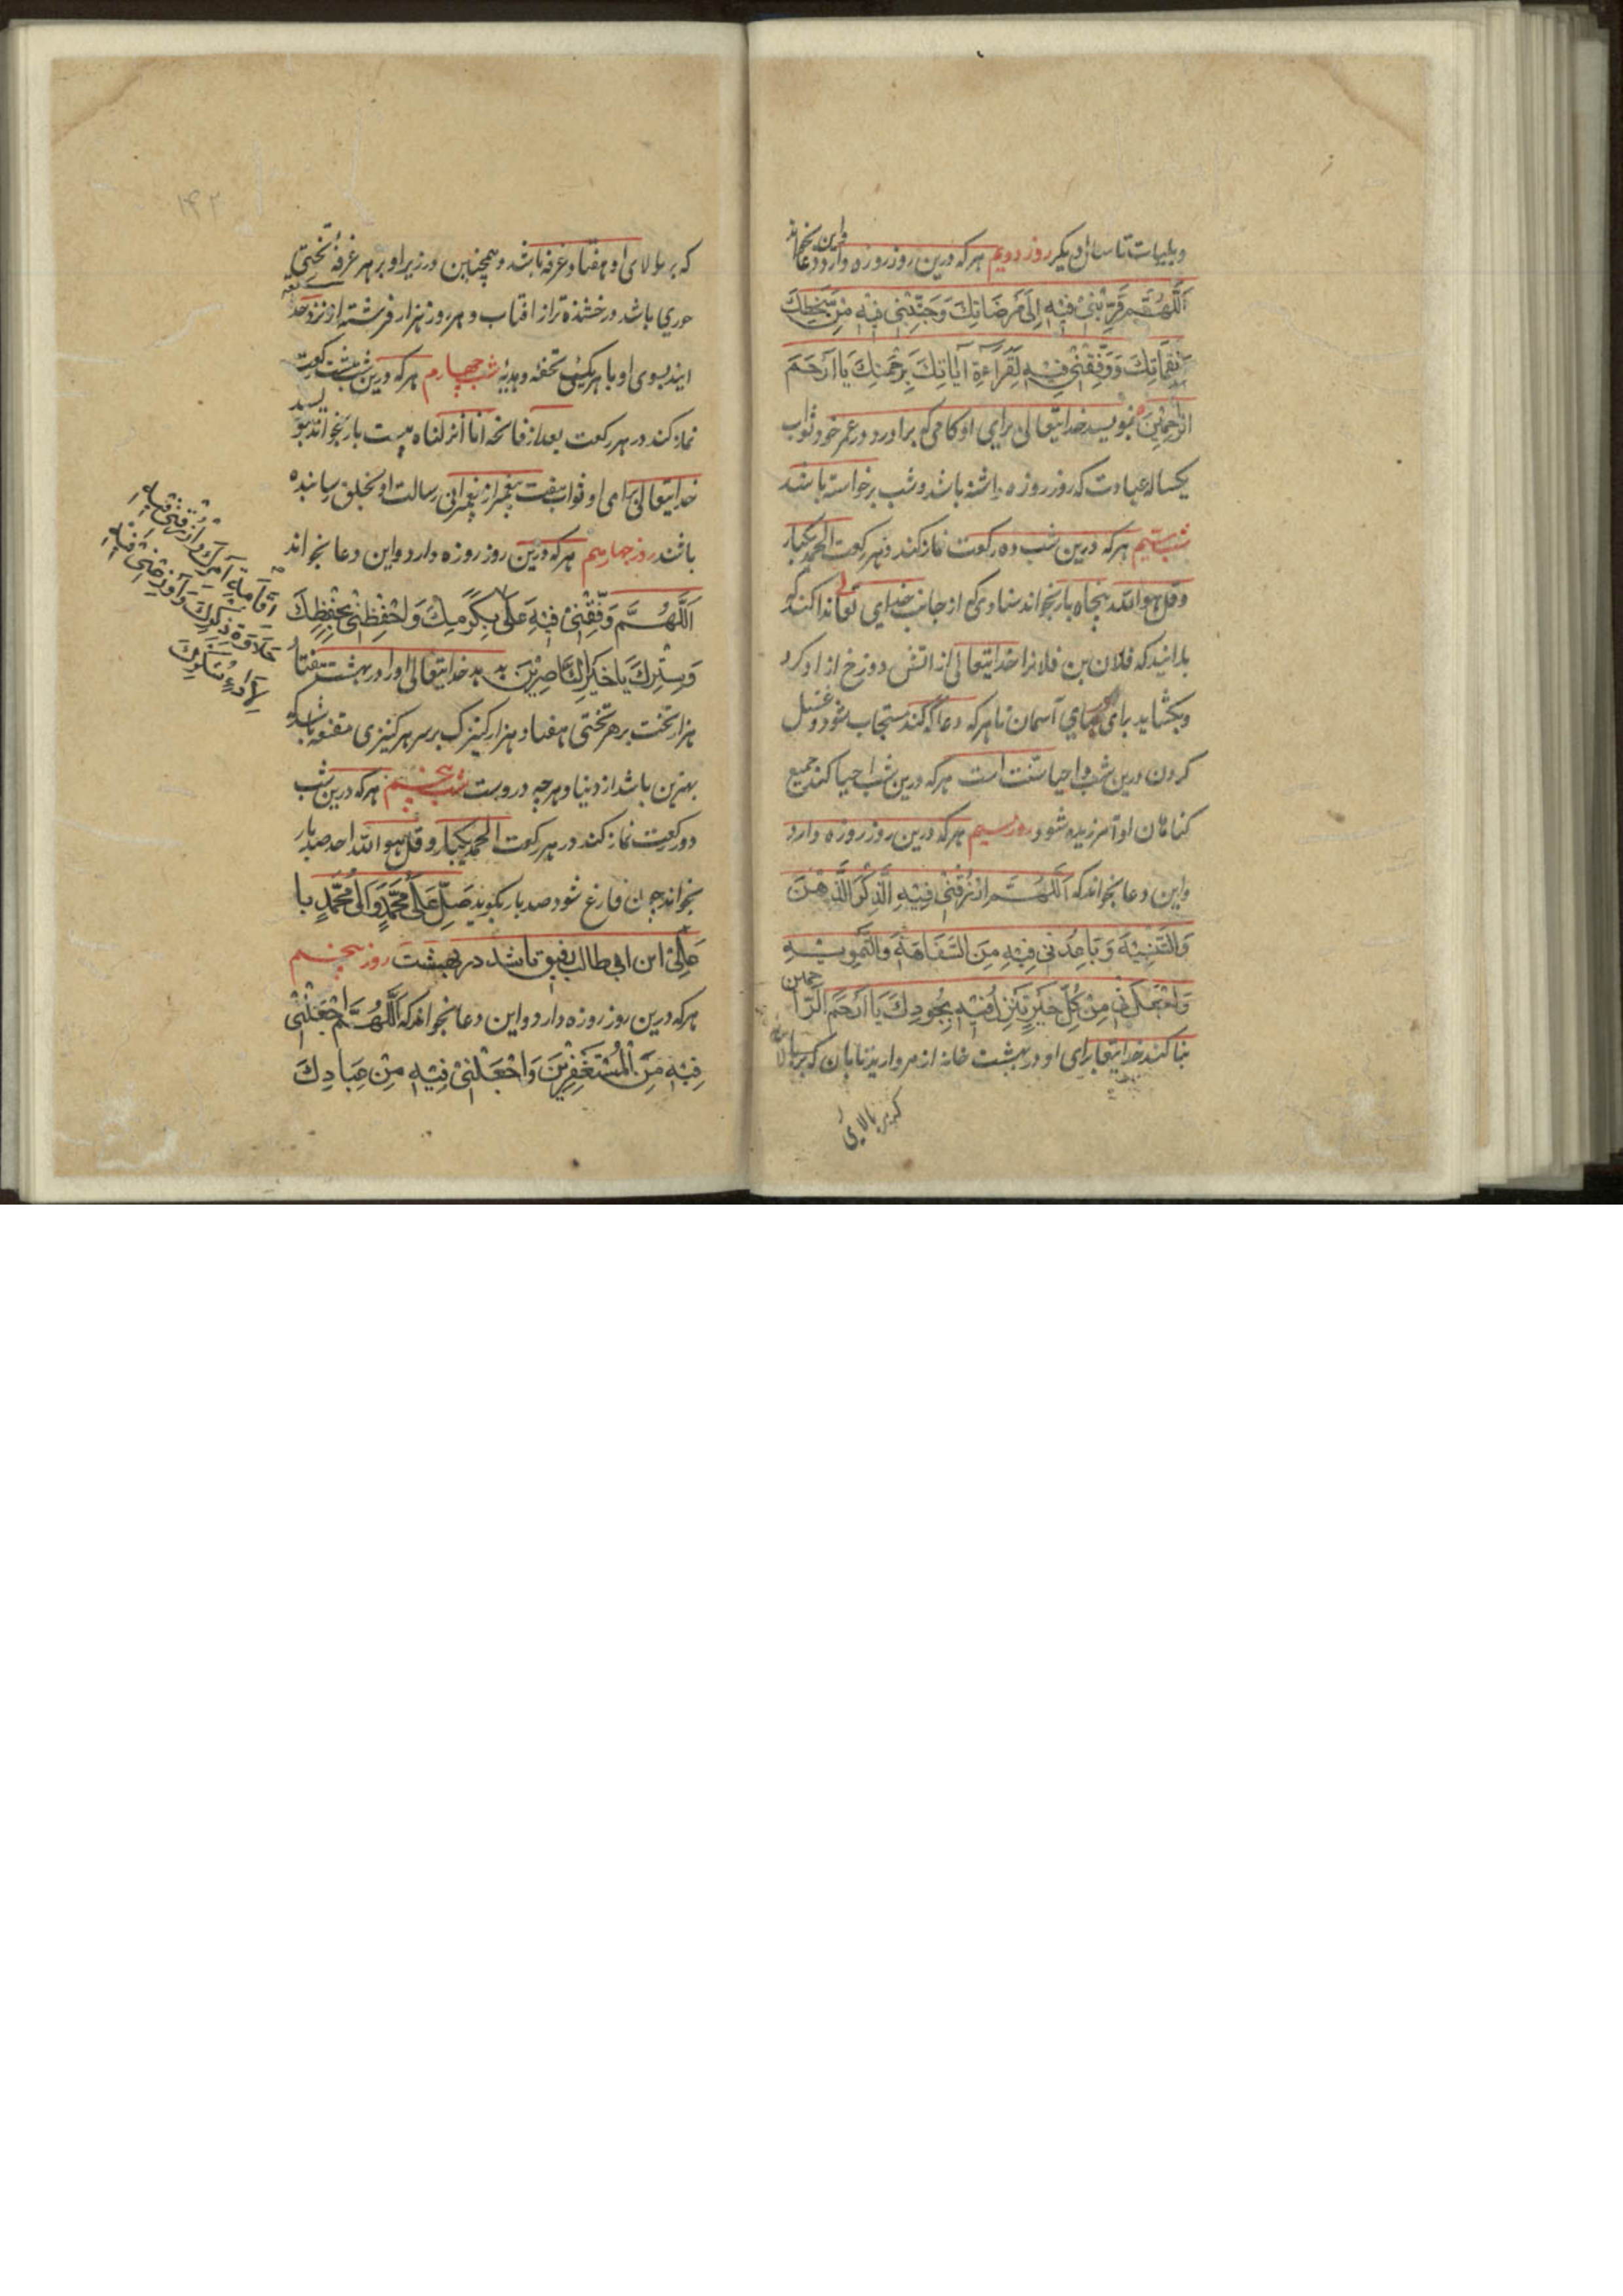 وبلیات تا سال دیکر روز دویم هرکه درین روز روزه دارد واین دعا بخواند
اَللّٰهُمَّ قَرِّبْنِیْ فِیْهِ اِلٰی مَرْضَاتِكَ وَجَنِّبْنِیْ فِیْهِ مِنْ سَخَطِكَ
وَنَقِمَاتِكَ وَوَفِّقْنِیْ فِیْهِ لِقَرَاءَةِ اٰیَاتِكَ بِرَحْمَتِكَ یَا اَرْحَمَ
الرَّحِمِیْنَ بنویسد خدایتعالی برای او کامی که براورد در عمر خود ثواب
یکساله عبادت که روز روزه داشته باشد وشب برخواسته باشد
شب سیم هرکه درین شب ده رکعت نماز کند در هر رکعت الحمد یکبار
وقل هو الله پنجاه بار بخواند منادی که از جانب خدای تعا ندا کند که
بدانید که فلان بن فلانرا خدایتعالی از اتش دوزخ ازاد کرد
وبکشاید برای هیای آسمان تا هرکه دعا که کند مستجاب شود وغسل
کردن درین شب واحیا سنت است هرکه درین شب احیا کند جمیع
کناهان او آمرزیده شود روز سیم هرکه درین روز روزه دارد
واین دعا بخواند که اَللّٰهُمَّ ارْزُقْنِیْ فِیْهِ الَّذِكْرَ الَّذِهْنَ
وَالتَّنْبِیْهَ وَبَاعِدْنِی فِیْهِ مِنَ السَّفَاهَةِ وَالتَّمْوِیْهِ
وَاجْعَلْنِی مِنْ كُلِّ خَیْرٍ تُنْزِلُ فِیْهِ بِجُودِكَ یَا اَرْحَمَ الرَّاحمین
بنا کند خدایتعا برای او در بهشت خانه از مروارید تابان که بر بالای
که بر بالای
۱۴۲
که بر بالای او هفتاد غرفه باشد وهمچنین در زیر او بر هر غرفه تختی
حوری باشد درخشنده تر از افتاب و هر روز هزار فرشته از نزد خدا
ایند بسوی او با هر یکی تحفه وهدیهٔ شب چهارم هرکه درین شب هشت رکعت
نماز کند در هر رکعت بعد از فاتحه انا انزلناه بیست بار بخواند بنویسد
خدایتعالی برای او ثواب هفت پیغمبر از پیغمبرانی رسالت او بخلق رسانیده
باشند روز چهارم هرکه درین روز روزه دارد واین دعا بخواند
اَللّٰهُمَّ وَفِّقْنِیْ فِیْهِ عَلٰی بِكَرَمِكَ وَاحْفِظْنِیْ بِحِفْظِكَ
وَسِتْرِكَ یَا خَیْرَ النَّاصِرِیْنَ بدهد خدایتعالی اورا در بهشت هفتاد
هزار تخت بر هر تختی هفتاد هزار کنیزک برسر هر کنیزی مقنعه باشد که
بهترین باشد از دنیا وهرچه دروست شب پنجم هرکه درین شب
دو رکعت نماز کند در هر رکعت الحمد یکبار وقل هو الله احد صد بار
بخواند چون فارغ شود صد بار بکوید صَلِّ عَلٰی مُحَمَّدٍ وَاٰلِ مُحَمَّدٍ با
عَلِیْ ابن ابی طالب رفیق باشد در بهشت روز پنجم
هرکه درین روز روزه دارد واین دعا بخواند که اَللّٰهُمَّ اجْعَلْنِیْ
فِیْهِ مِنَ الْمُسْتَغْفِرِیْنَ وَاجْعَلْنِیْ فِیْهِ مِنْ عِبَادِكَ
اِقَامَةِ اَمْرِكَ وَارْزُقْنِیْ فِیْهِ
حَلَاوَةَ ذِكْرِكَ وَاَوْزِعْنِیْ فِیْهِ
لِاَدَاءِ شُكْرِكَ